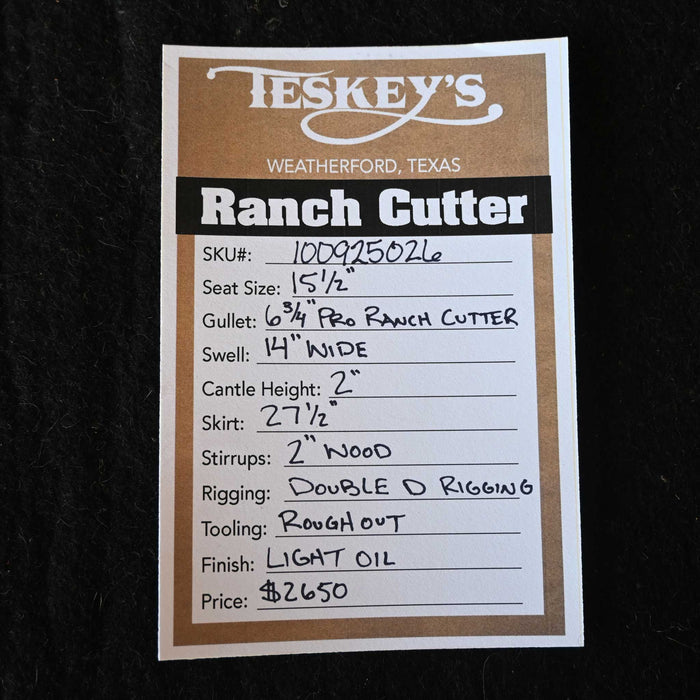 TESKEY'S
WEATHERFORD, TEXAS
Ranch Cutter
SKU#: 100925026
Seat Size: 15 1/2"
Gullet: 6 3/4" PRO RANCH CUTTER
Swell: 14" WIDE
Cantle Height: 2"
Skirt: 27 1/2"
Stirrups: 2" WOOD
Rigging: DOUBLE D RIGGING
Tooling: ROUGHOUT
Finish: LIGHT OIL
Price: $2650